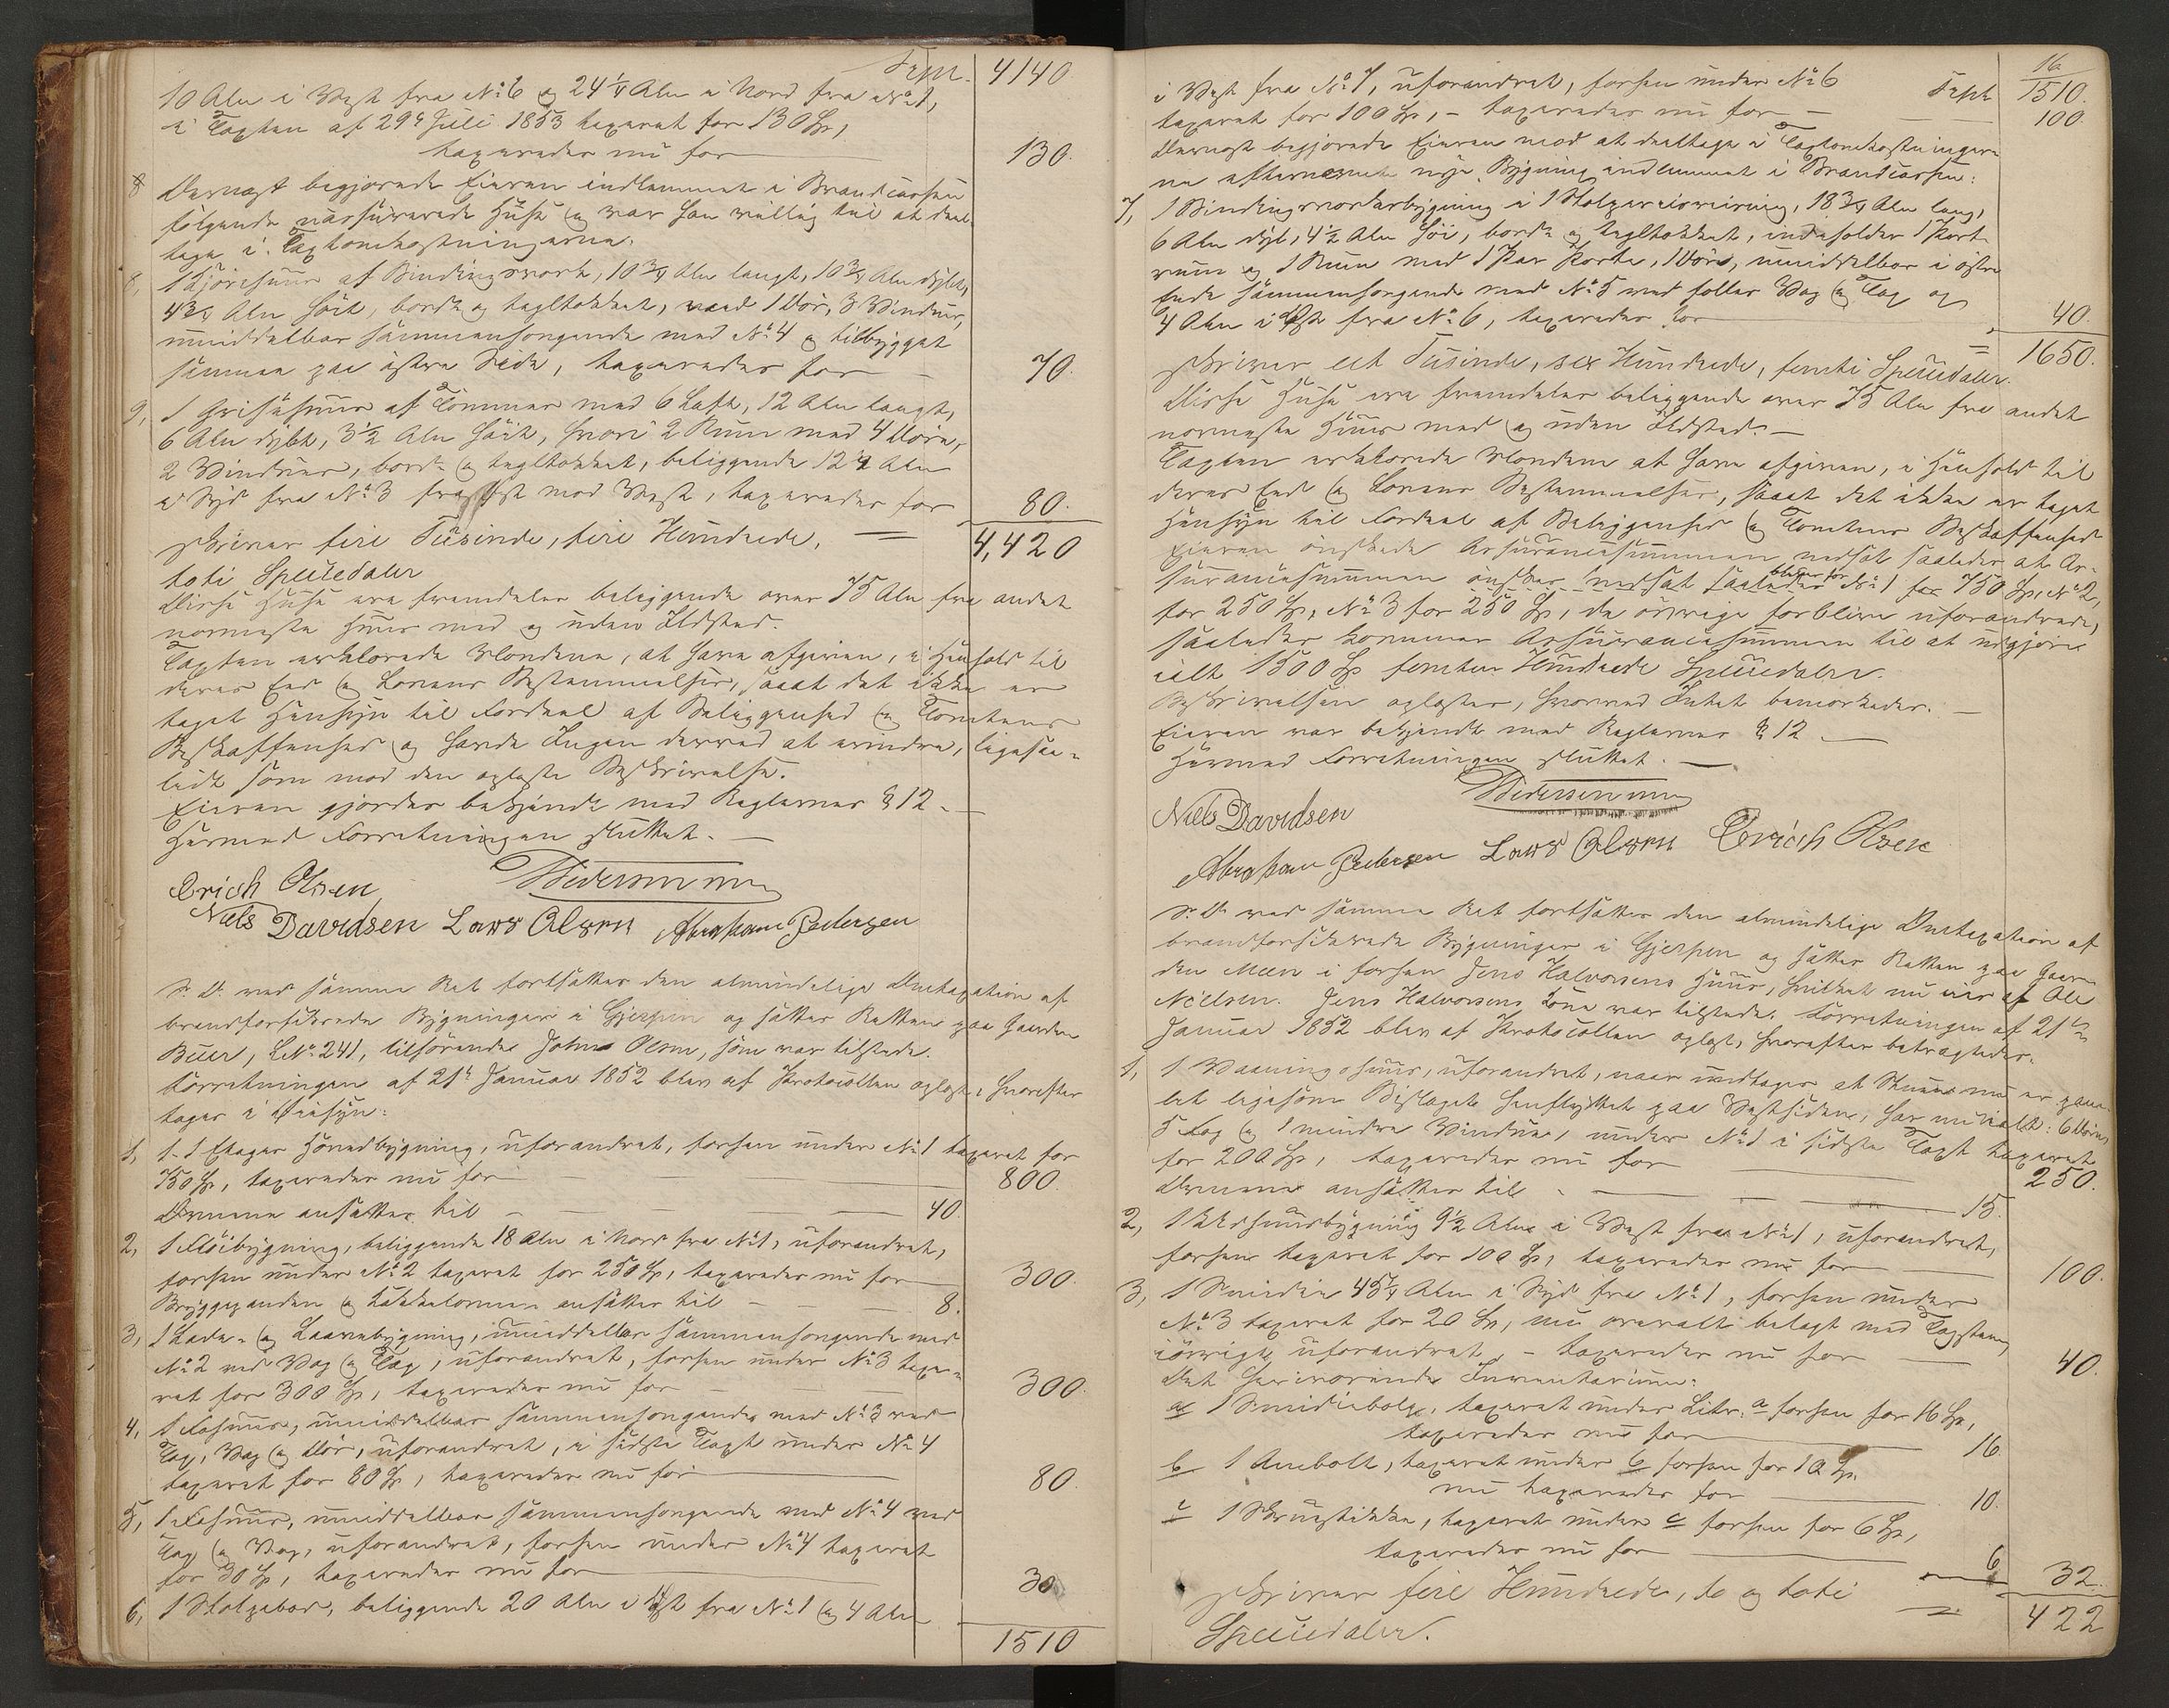 Trpt. 4140
10 Alen i Vest fra No 6 og 24¼ Alen i Nord fra No 1,
i Taxten af 29de Juli 1853 taxeret for 130 Sp,
taxeredes nu for 130.
8 Dernæst begjærede Eieren indlemmet i Brandcassen
følgende uassurerede Huse og var han villig til at deel-
tage i Taxtomkostningerne.
8, 1 af Bindingsværk, 10¾ Alen langt, 10¾ Alen dybt,
4¾ Alen høit, bord- og tegltækket, med 1 Dør, 3 Vinduer,
umiddelbar sammenhængende med No 4 og tilbygget
samme paa østre Side, taxeredes for 70.
9, 1 Grisehuus af Tømmer med 6 Laft, 12 Alen langt,
6 Alen dybt, 3½ Alen høit, hvori 2 Rum med 4 Døre,
2 Vinduer, bord- og tegltækket, beliggende 12 Alen
i Syd fra No 3 fra Øst mod Vest, taxeredes for 80.
skriver fire Tusinde, fire Hundrede, 4,420
toti Speciedaler
Disse Huse ere fremdeles beliggende over 75 Alen fra andet
nærmeste Huus med og uden Ildsted.
Taxten erklærede Mændene, at have afgivet, i Henhold til
deres Eed og Lovens Bestemmelser, saa at det ikke er
taget Hensyn til Fordeel af Beliggenhed og Tomtens
Beskaffenhed og havde Ingen derved at erindre, ligesaa-
lidt som mod den oplæste Beskrivelse.
Eieren gjordes bekjendt med Reglernes § 12.
Hermed Forretningen sluttet.
Erich Olsen
Niels Davidsen Lars Olsen Abraham Pedersen
S. D. ved samme Ret fortsattes den almindelige Omtaxation af
brandforsikrede Bygninger i Gjerpen og sattes Retten paa Gaarden
Buer, LNo 241, tilhørende John Olsen, som var tilstede.
Forretningen af 21de Januar 1852 blev af Protocollen oplæst, hvorefter
toges i Øiesyn:
1, 1-1 Etages Hovedbygning, uforandret, forhen under No 1 taxeret for
750 Sp, taxeredes nu for 800
Ovnene ansættes til 40.
2, 1 Fløibygning, beliggende 18 Alen i Nord fra No 1, uforandret,
forhen under No 2 taxeret for 250 Sp, taxeredes nu for 300.
Bryggepanden og Kakkelovnen ansættes til 8.
3, 1 Lade- og Laavebygning, umiddelbar sammenhængende med
No 2 ved Væg og Tag, uforandret, forhen under No 3 taxe-
ret for 300 Sp, taxeredes nu for 300.
4, 1 Fæhuus, umiddelbar sammenhængende med No 3 ved
Tag, Væg og Dør, uforandret, i sidste Taxt under No 4
taxeret for 80 Sp, taxeredes nu for 80.
5, 1 Fæhuus, umiddelbar sammenhængende med No 4 ved
Tag og Væg, uforandret, forhen under No 4 taxeret
for 30 Sp, taxeredes nu for 30
6, 1 Stolpebod, beliggende 20 Alen i Øst fra No 1 og 4 Alen
1510
16
i Vest fra No 7, uforandret, forhen under No 6 Trpt 1510.
taxeret for 100 Sp, - taxeredes nu for 100.
Dernæst begjærede Eieren mod at deeltage i Taxtomkostninger-
ne efternævnte nye Bygning indlemmet i Brandcassen:
7, 1 Bindingsværksbygning i 1 18¾ Alen lang,
6 Alen dyb, 4½ Alen høi, bord- og tegltækket, indeholder 1 Port-
rum og 1 Rum med 1 Par Porte, 1 Dør, umiddelbar i østre
Ende sammenhængende med No 5 med fælles Væg og Tag og
4 Alen i Øst fra No 6, taxeredes for 40.
skriver eet Tusinde, sex Hundrede, femti Speciedaler. 1650.
Disse Huse ere fremdeles beliggende over 75 Alen fra andet
nærmeste Huus med og uden Ildsted.
Taxten erklærede Mændene at have afgivet, i Henhold til
deres Eed og Lovens Bestemmelser, saa at det ikke er taget
Hensyn til Fordeel af Beliggenhed og Tomtens Beskaffenhed
Eieren ønskede Assurancesummen nedsat saaledes at As-
surancesummen ønskes nedsat saaledes bliver for No 1 for 750 Sp, No 2,
for 250 Sp, No 3 for 250 Sp, de øvrige forblive uforandrede,
saaledes kommer Assurancesummen til at udgjøre
ialt 1500 Sp femten Hundrede Speciedaler.
Beskrivelsen oplæstes, hvorved Intet bemærkedes.
Eieren var bekjendt med Reglernes § 12
Hermed Forretningen sluttet.
Niels Davidsen
Abraham Pedersen Lars Olsen Erich Olsen
S. D. ved samme Ret fortsattes den almindelige Omtaxation af
brandforsikrede Bygninger i Gjerpen og sattes Retten paa Gaar-
den Meen i forhen Jens Halvorsens Huus, hvilket nu eies af Ole
Nielsen. Jens Halvorsens Kone var tilstede. Forretningen af 21de
Januar 1852 blev af Protocollen oplæst, hvorefter betragtedes.
1, 1 Vaaningshuus, uforandret, naar undtages at nu er pane-
let ligesom Bislaget henflyttet paa Vestsiden, har nu ialt: 6 Døre,
5 Fag og 1 mindre Vindue, under No 1 i sidste Taxt taxeret
for 200 Sp, taxeredes nu for 250.
Ovnene ansættes til 15.
2, 1 9½ Alen i Vest fra No 1, uforandret,
forhen taxeret for 100 Sp, taxeredes nu for 100.
3, 1 Smidie 45¼ Alen i Syd fra No 1, forhen under
No 3 taxeret for 20 Sp, nu overalt belagt med Tagsteen,
iøvrigt uforandret, - taxeredes nu for 40.
Det heri værende Inventarium:
a 1 Smidiebælg, taxeret under Litr. a forhen for 16 Sp,
taxeredes nu for 16.
b 1 Ambolt, taxeret under b forhen for 10 Sp.
nu taxeredes for 10.
c 1 Skruestikke, taxeret under c forhen for 6 Sp,
taxeredes nu for 6 32.
skriver fire Hundrede, to og toti 422
Speciedaler.